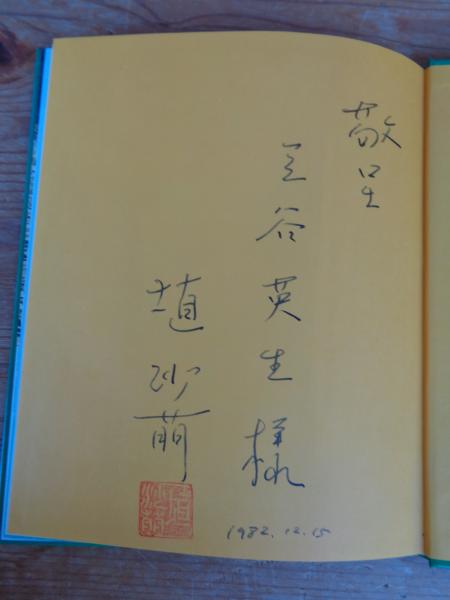 敬呈
三谷英生様
埴沙萠
1982.12.15